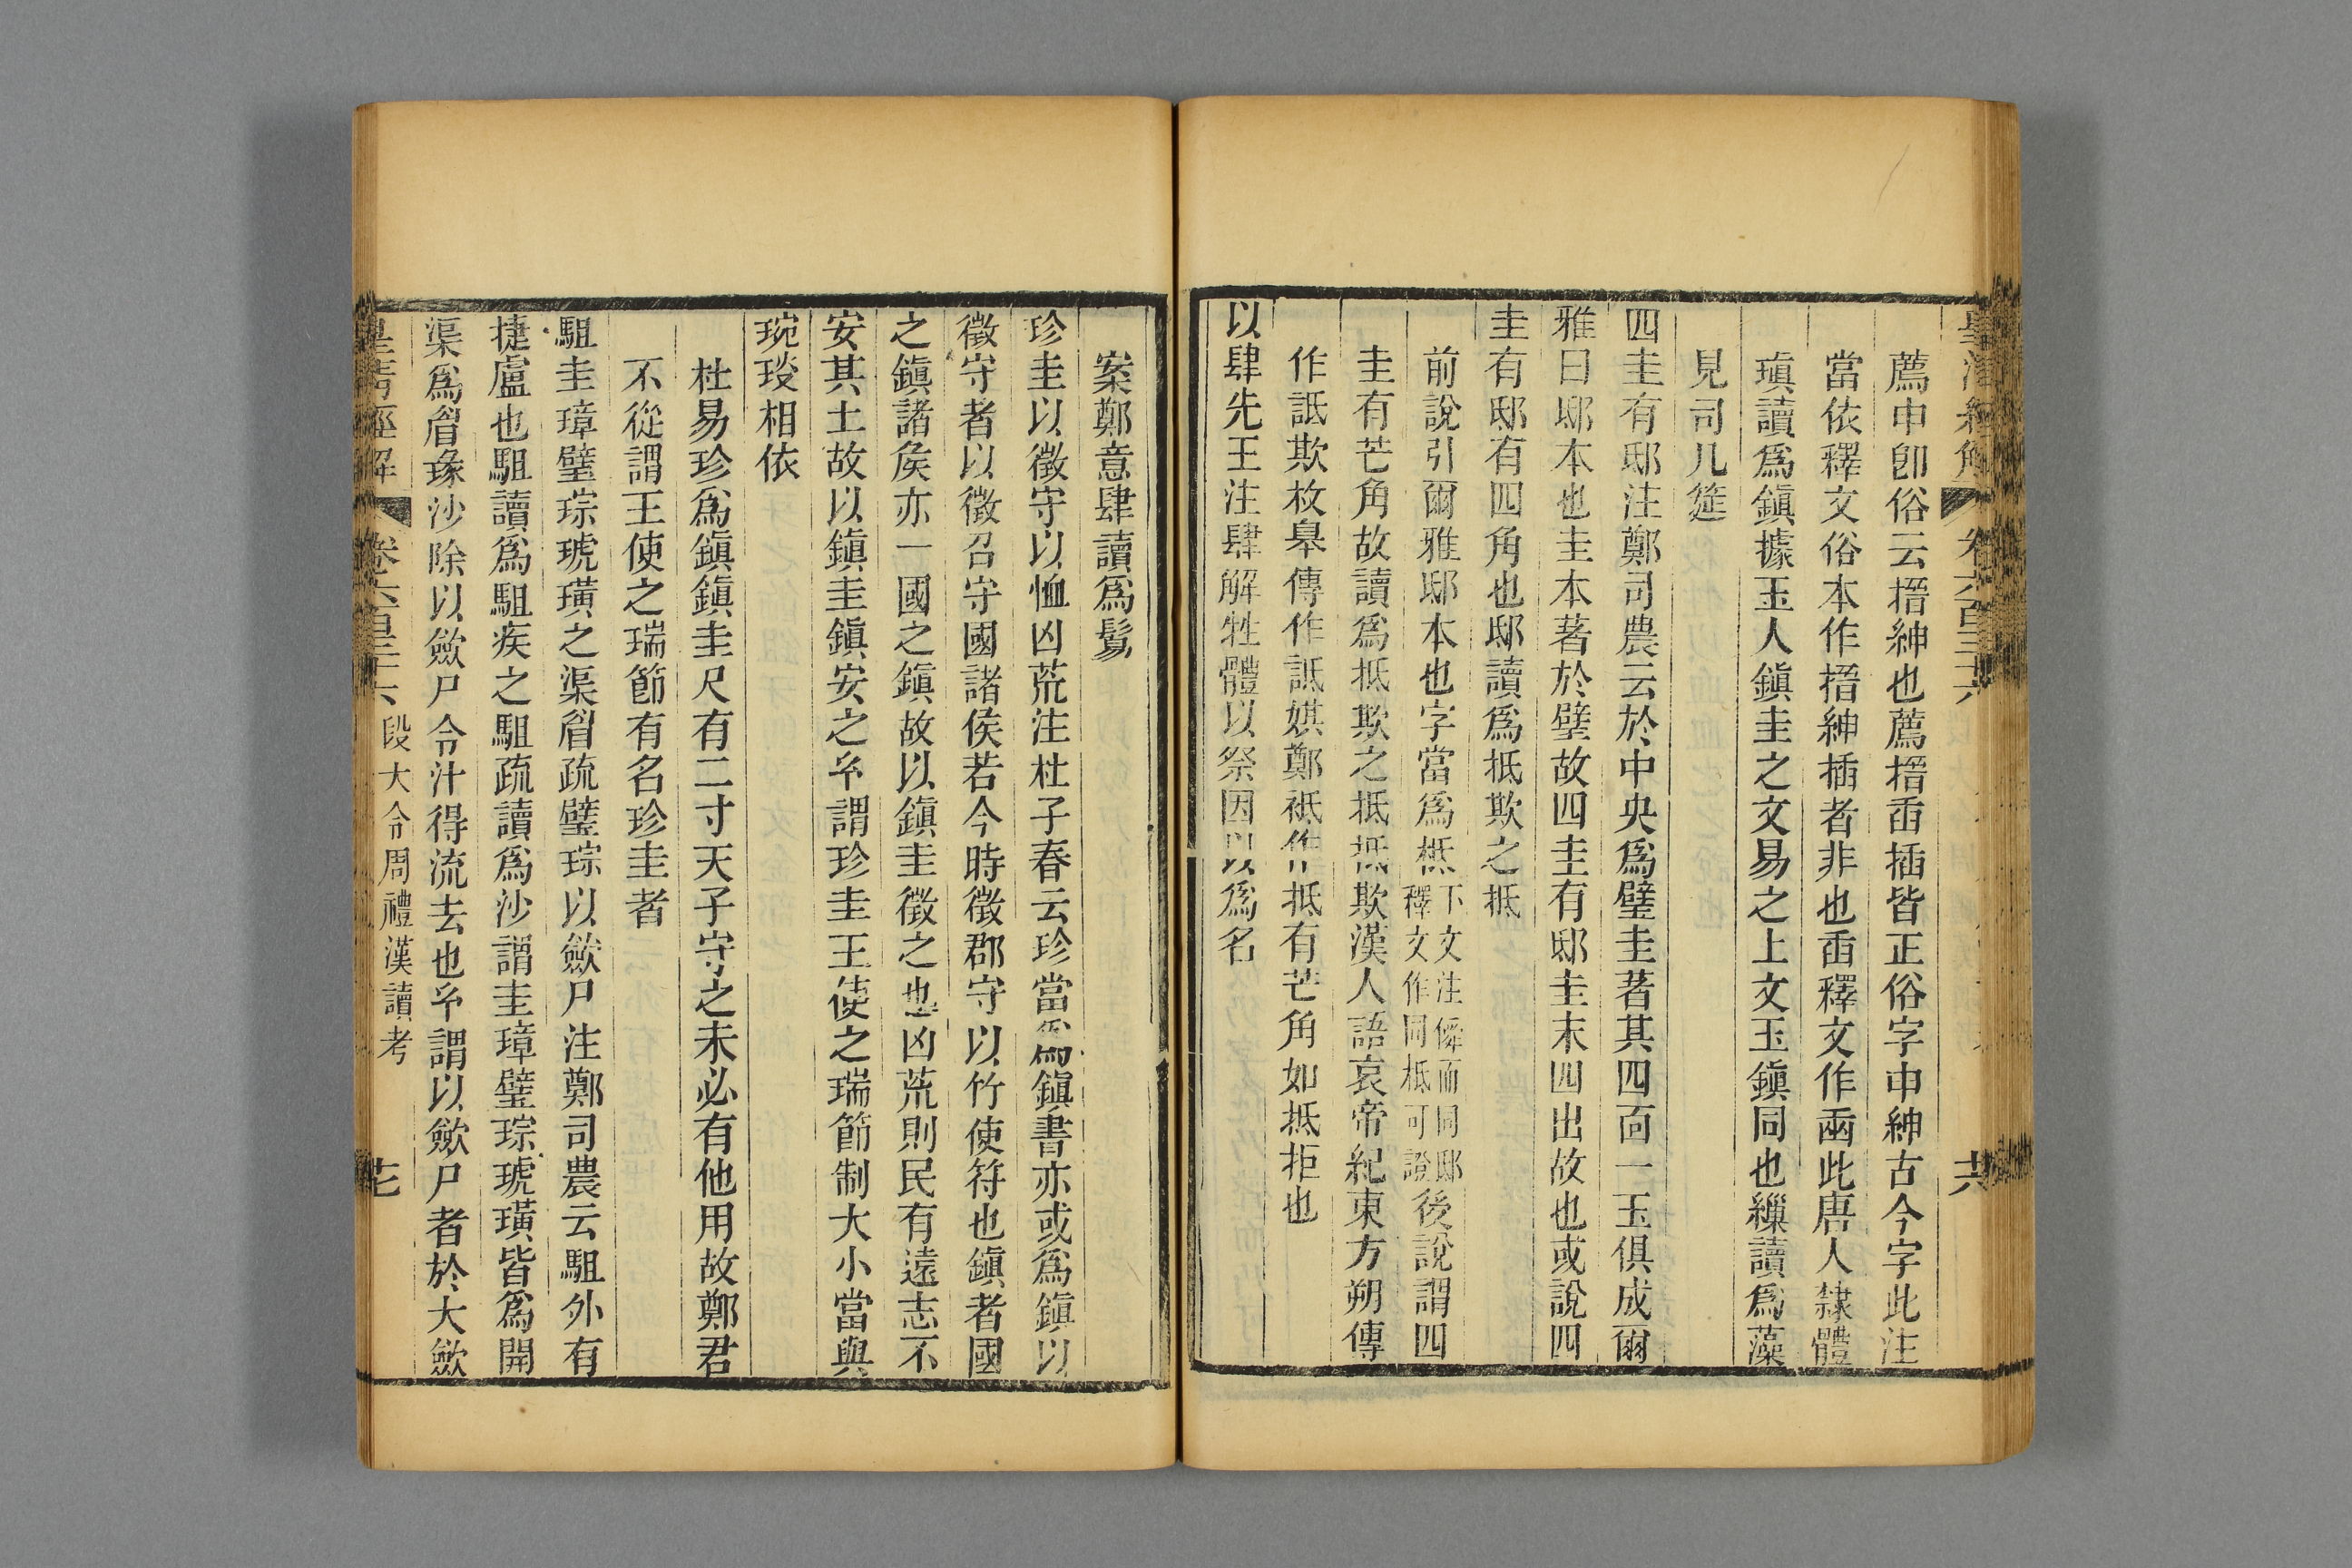 皇清經解 卷六百三十六 六
薦申卽俗云搢紳也薦搢臿插皆正俗字申紳古今字此注
當依釋文俗本作搢紳插者非也臿釋文作臿此唐人隸體
瑱讀爲鎭據玉人鎭圭之文易之上文玉鎭同也繅讀爲藻
見司几筵
四圭有邸注鄭司農云於中央爲璧圭著其四面一玉俱成爾
雅曰邸本也圭本著於璧故四圭有邸圭末四出故也或說四
圭有邸有四角也邸讀爲抵欺之抵
前說引爾雅邸本也字當爲柢下文注僢而同邸釋文作同柢可證後說謂四
圭有芒角故讀爲抵欺之抵抵欺漢人語哀帝紀東方朔傳
作詆欺枚皋傳作詆娸鄭祗作抵有芒角如抵拒也
以肆先王注肆解牲體以祭因以爲名
案鄭意肆讀爲鬄
珍圭以徵守以恤凶荒注杜子春云珍當爲鎭書亦或爲鎭以
徵守者以徵召守國諸侯若今時徵郡守以竹使符也鎭者國
之鎭諸矦亦一國之鎭故以鎭圭徵之也凶荒則民有遠志不
安其土故以鎭圭鎭安之玄謂珍圭王使之瑞節制大小當與
琬琰相依
杜易珍爲鎭鎭圭尺有二寸天子守之未必有他用故鄭君
不從謂王使之瑞節有名珍圭者
駔圭璋璧琮琥璜之渠眉疏璧琮以斂尸注鄭司農云駔外有
捷盧也駔讀爲駔疾之駔疏讀爲沙謂圭璋璧琮琥璜皆爲開
渠爲眉瑑沙除以斂尸令汁得流去也玄謂以斂尸者於大斂
皇清經解 卷六百三十六 段大令周禮漢讀考